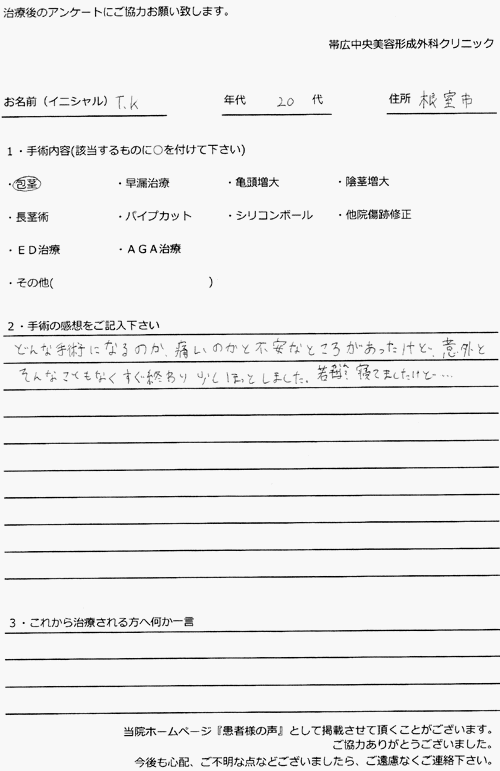 治療後のアンケートにご協力お願い致します。
帯広中央美容形成外科クリニック
お名前（イニシャル） T.K 年代 20 代 住所 根室市
１・手術内容(該当するものに○を付けて下さい)
・包茎 ・早漏治療 ・亀頭増大 ・陰茎増大
・長茎術 ・パイプカット ・シリコンボール ・他院傷跡修正
・ＥＤ治療 ・ＡＧＡ治療
・その他( )
２・手術の感想をご記入下さい
どんな手術になるのか、痛いのかと不安なところがあったけど、意外と
そんなこともなくすぐ終わり 少しほっとしました。若干 寝てましたけど…
３・これから治療される方へ何か一言
当院ホームページ『患者様の声』として掲載させて頂くことがございます。
ご協力ありがとうございました。
今後も心配、ご不明な点などございましたら、ご遠慮なくご連絡下さい。